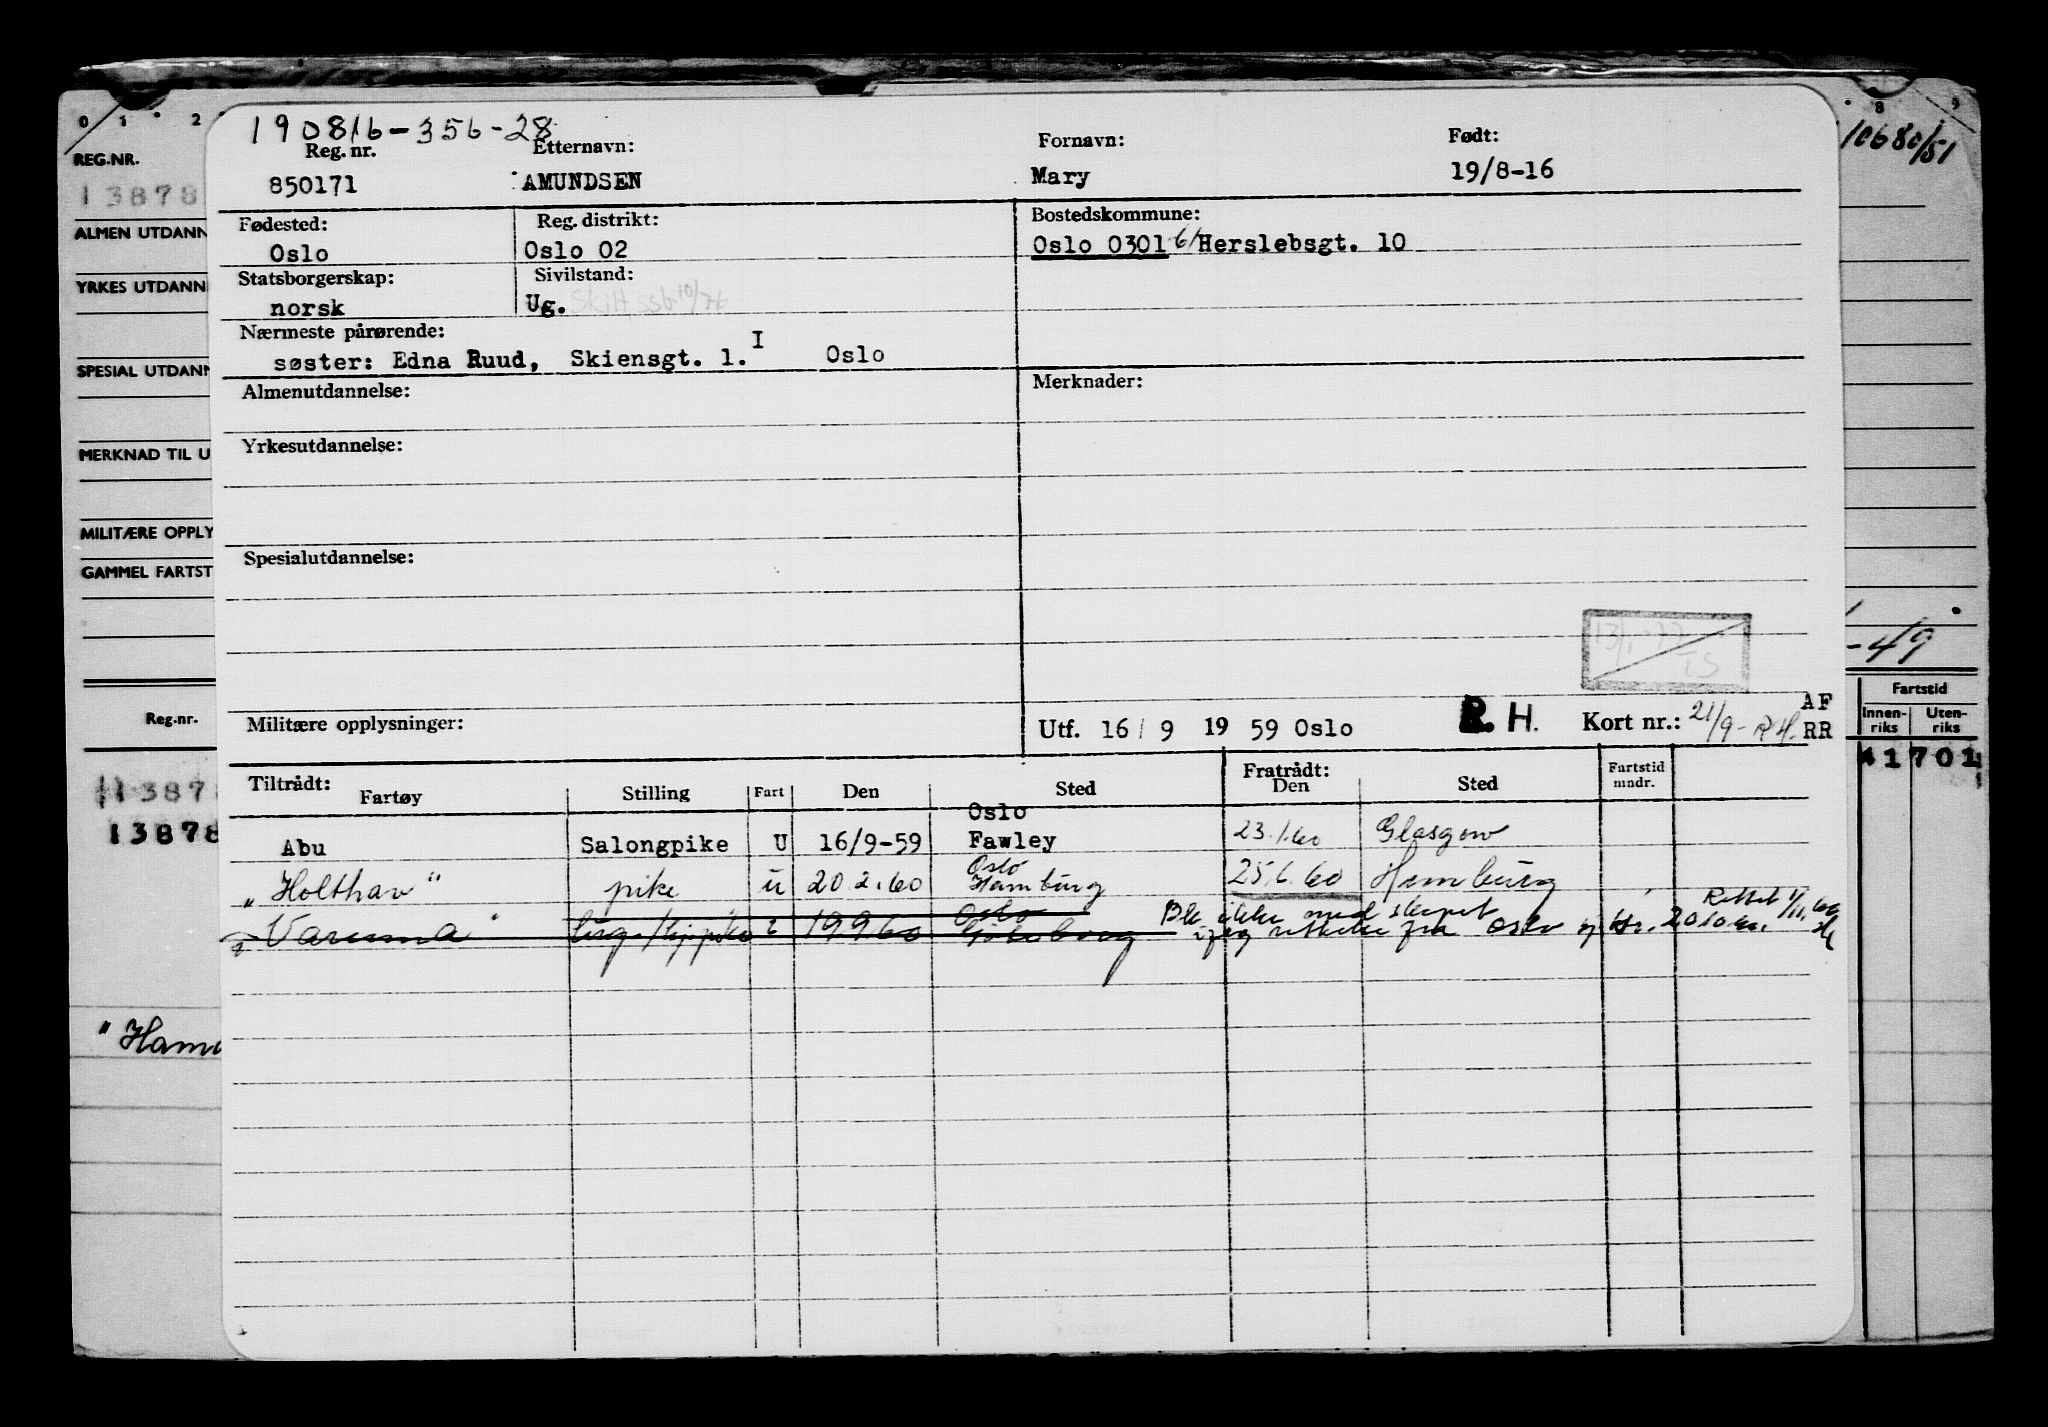 190816-356-28
Reg. nr. Etternavn: Fornavn: Født:
850171 AMUNDSEN Mary 19/8-16
Fødested: Reg. distrikt: Bostedskommune:
Oslo Oslo 02 Oslo 0301 61 Herslebsgt. 10
Statsborgerskap: Sivilstand:
norsk Ug.
Nærmeste pårørende:
søster: Edna Ruud, Skiensgt. 1. I Oslo
Almenutdannelse: Merknader:
Yrkesutdannelse:
Spesialutdannelse:
13/1-77
TS
Militære opplysninger: Utf. 16/9 19 59 Oslo R. H. Kort nr.: 21/9- RH. AF RR
Tiltrådt: Fratrådt:
Fartøy Stilling Fart Den Sted Den Sted Fartstid mndr.
Oslo
Abu Salongpike U 16/9-59 Fawley 23.1.60 Glasgow
Oslo
"Holthav" pike u 20.2.60 Hamburg 25.6.60 Hamburg
Varuna 19.9.60 Oslo Gøteborg
Ble ikke med skipet
fra Oslo
REG.NR.
13878
ALMEN UTDANN
YRKES UTDANN
SPESIAL UTDANN
MERKNAD TIL U
MILITÆRE OPPLY
GAMMEL FARTST
Reg.nr.
13878
13878
"Ham
10680/51
-49
Fartstid
Innen-riks Uten-riks
41701